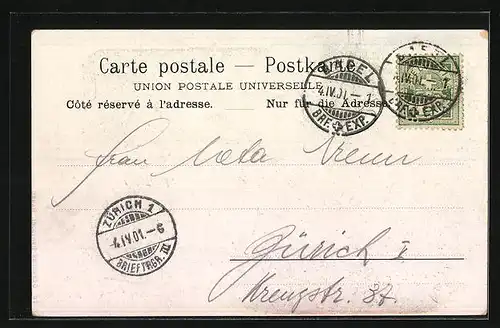 Carte postale — Postkarte
UNION POSTALE UNIVERSELLE
Côté réservé à l'adresse. Nur für die Adresse.
BASEL
4.IV.01.–1
BRF. EXP.
Frau Meta
Zürich I
Kreuzstr. 37.
ZÜRICH 1
4.IV.01.–6
BRIEFTRGR. III